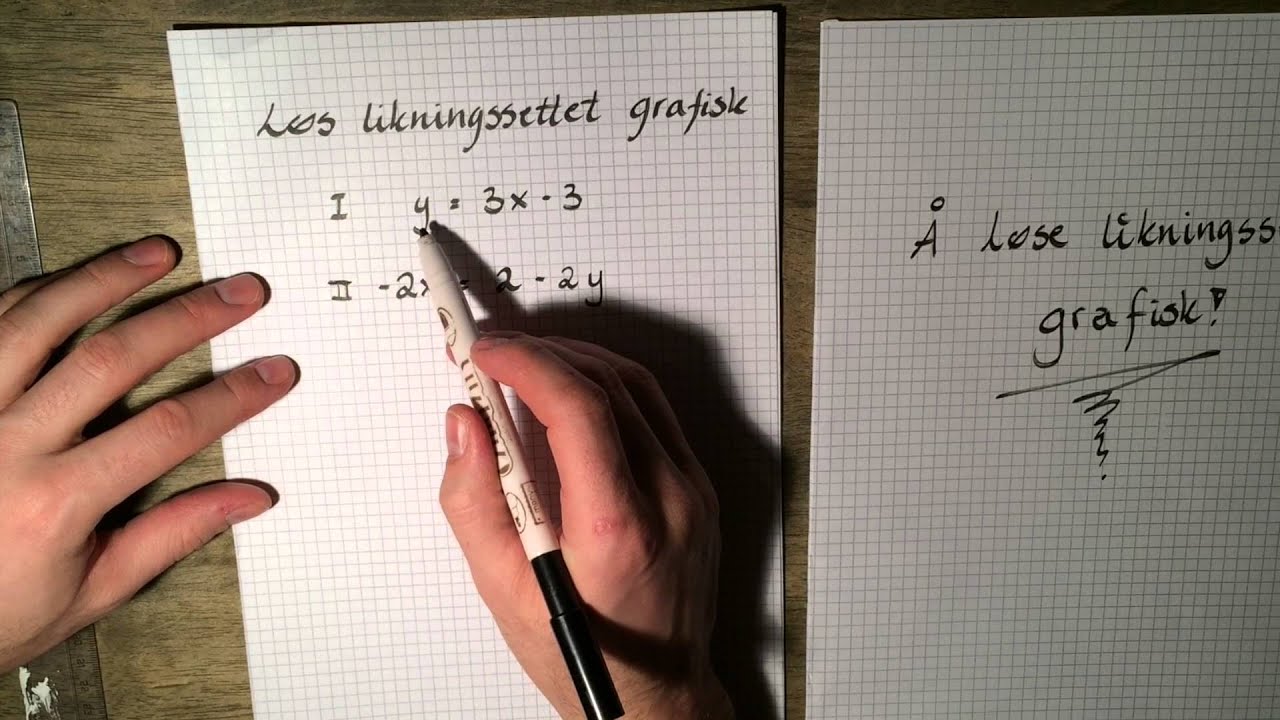 Løs likningssettet grafisk
I y = 3x - 3
II -2x = 2 - 2y
Å løse likningss
grafisk!